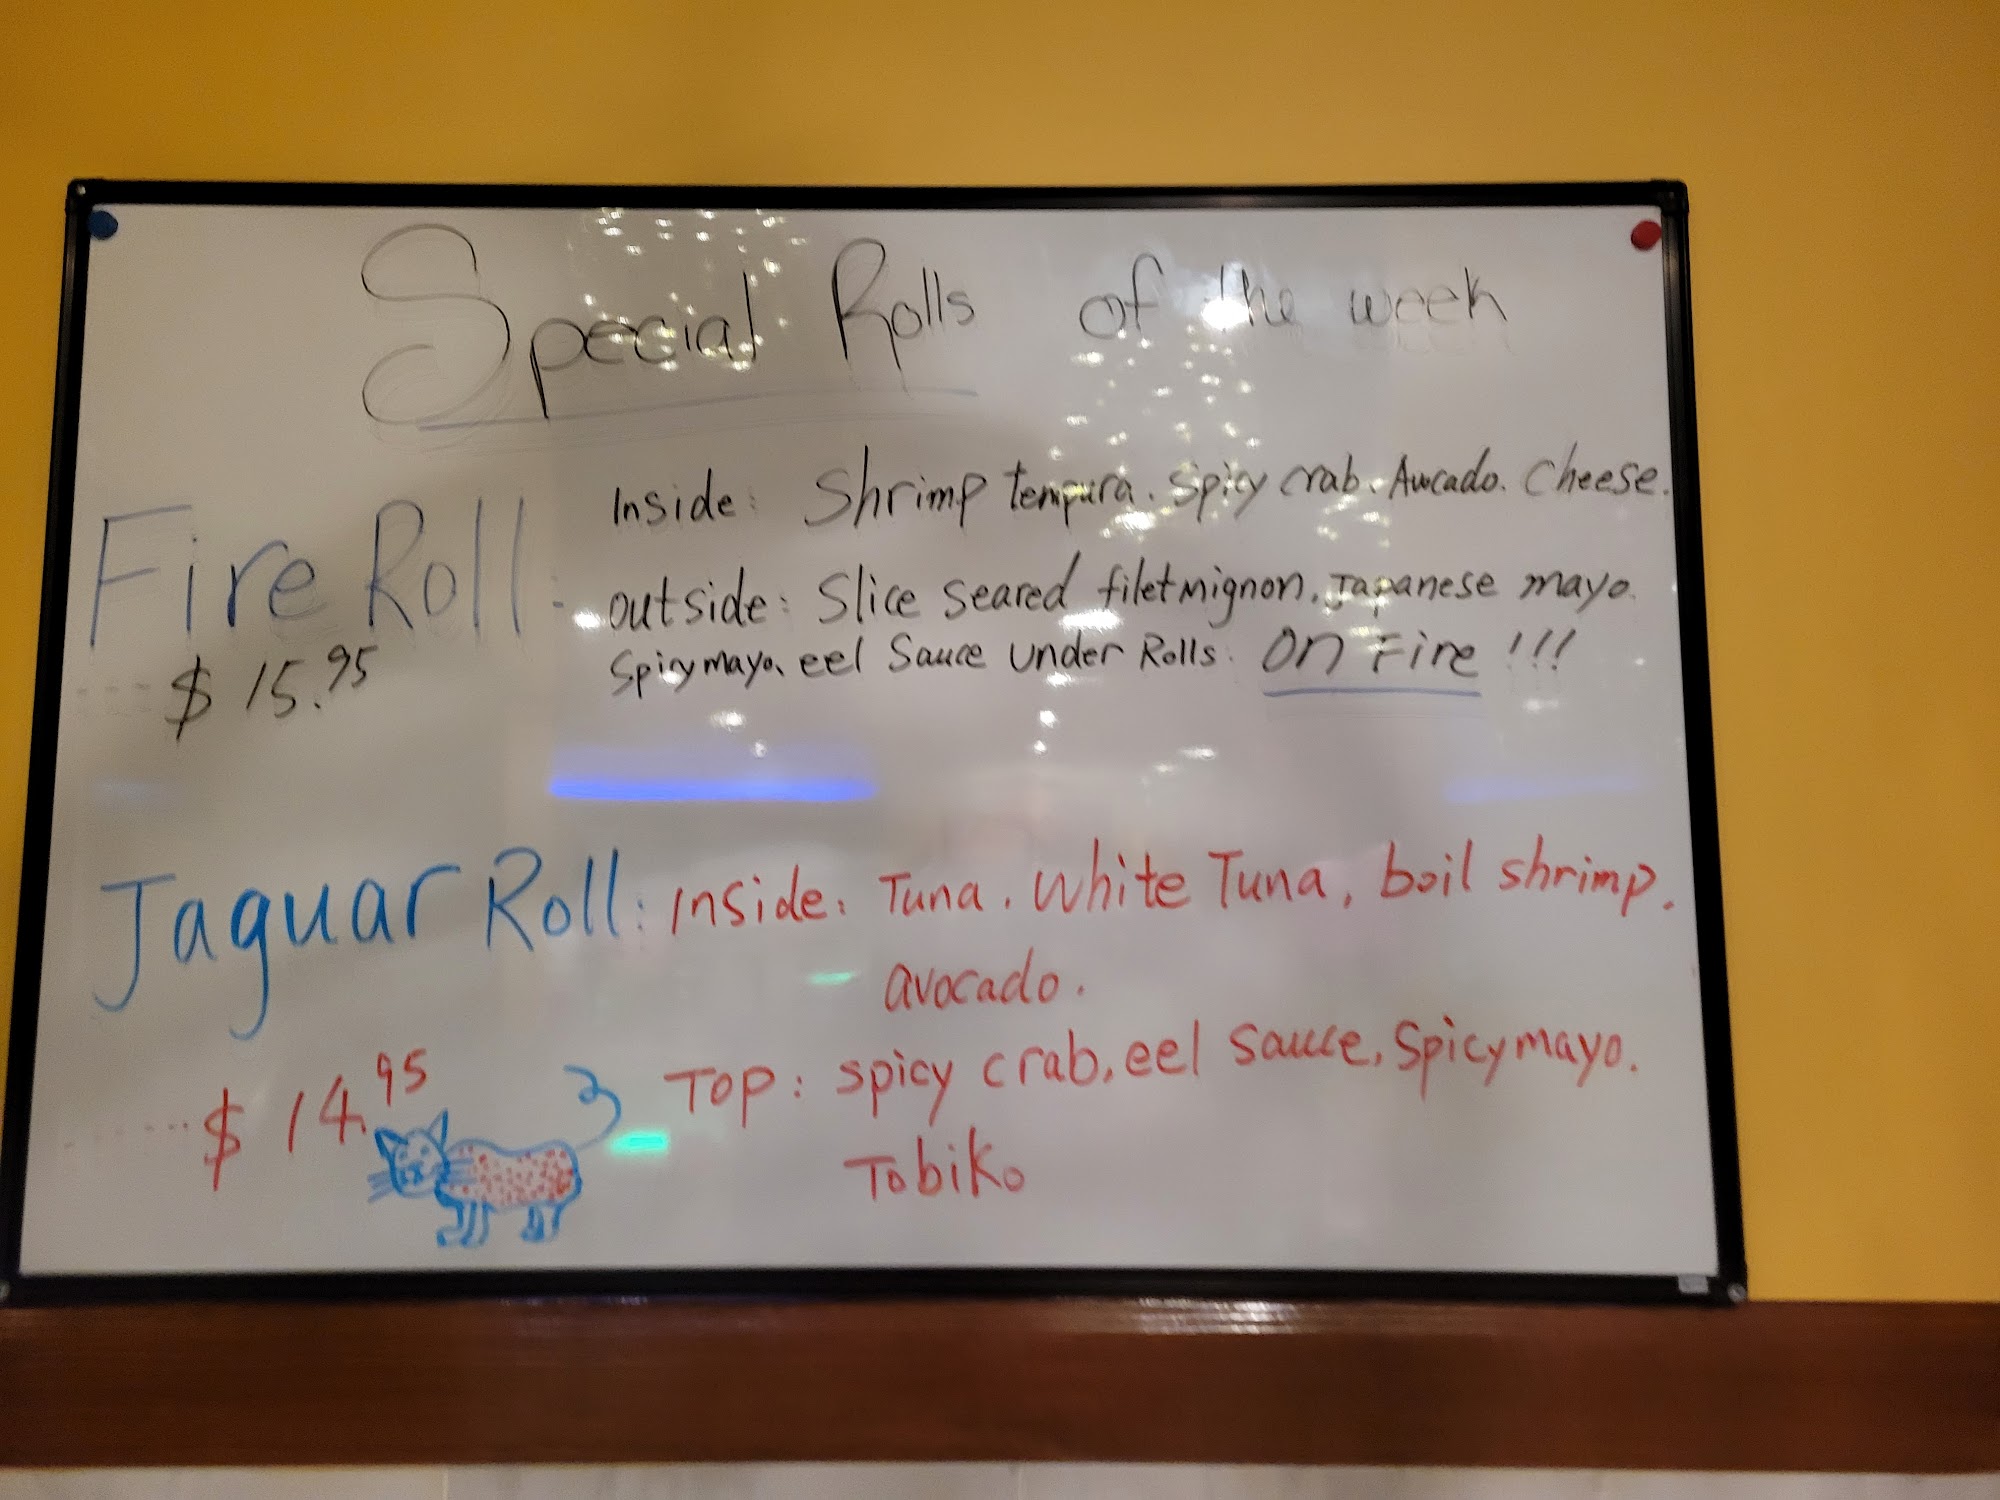 Special Rolls of the week
Inside: Shrimp tempura. Spicy crab. Avocado. Cheese.
Fire Roll:
outside: Slice seared filetmignon, Japanese mayo.
$15.95
Spicymayo, eel Sauce under Rolls. On Fire!!!
Jaguar Roll: Inside: Tuna. White Tuna, boil shrimp.
avocado.
$14.95
Top: spicy crab, eel sauce, Spicymayo.
Tobiko